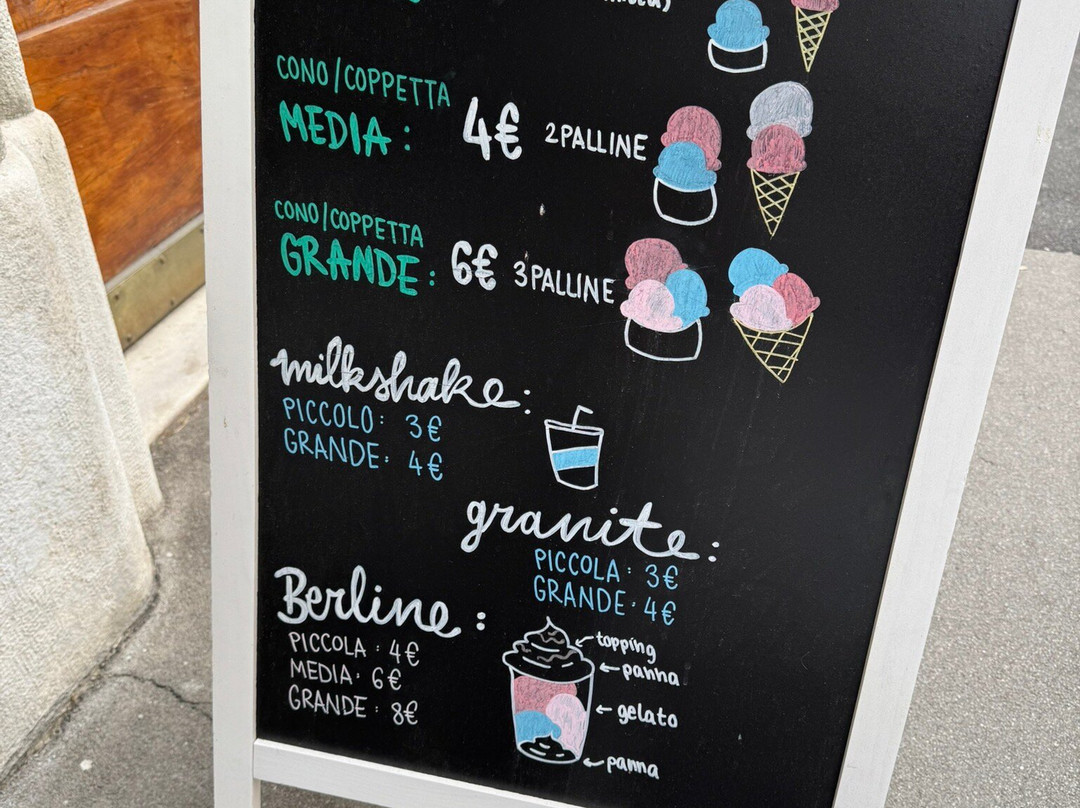 CONO/COPPETTA
MEDIA: 4€ 2 PALLINE
CONO/COPPETTA
GRANDE: 6€ 3 PALLINE
milkshake:
PICCOLO: 3€
GRANDE: 4€
granite:
PICCOLA: 3€
GRANDE: 4€
Berline:
PICCOLA: 4€
MEDIA: 6€
GRANDE: 8€
topping
panna
gelato
panna